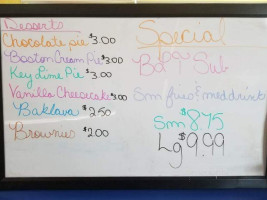 Desserts
Chocolate pie $3.00
Boston Cream Pie $3.00
Key Lime Pie $3.00
Vanilla Cheesecake $3.00
Baklava $2.50
Brownies $2.00
Special
BBQ Sub
Sm fries & med drink
Sm $8.75
Lg $9.99